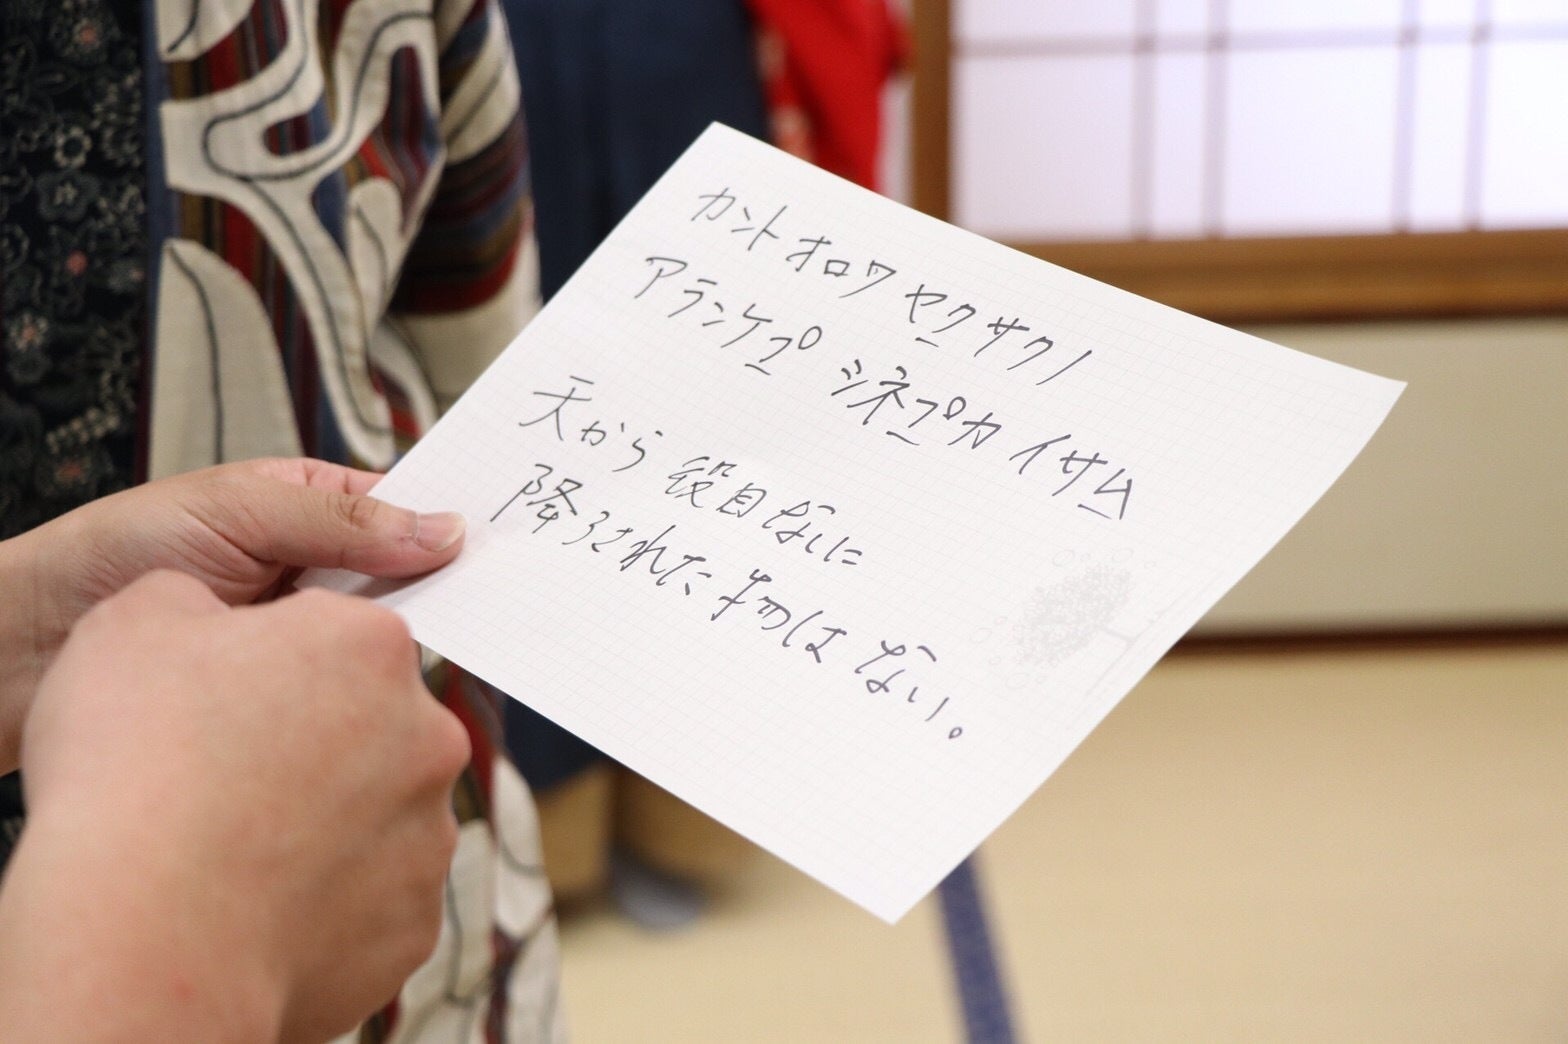 カント オロワ ヤク サク ノ
アランケプ シネプ カ イサム
天から 役目なしに
降ろされた 物は ない。